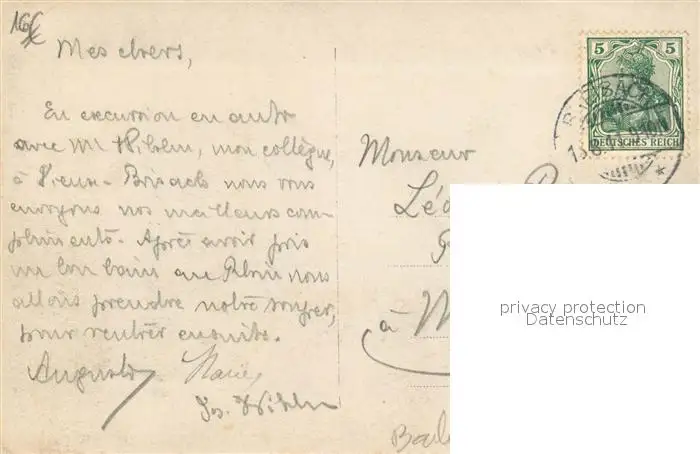 16
Mes chers,
En excursion en auto
avec Mr Wihlm, mon collègue,
à Vieux-Brisach nous vous
envoyons nos meilleurs com-
pliments. Après avoir pris
un bon bain au Rhin nous
allons prendre notre souper,
pour rentrer ensuite.
Auguste Marie
Jos. Wihlm
5 5
DEUTSCHES REICH
Monsieur
Léo
à M
privacy protection
Datenschutz